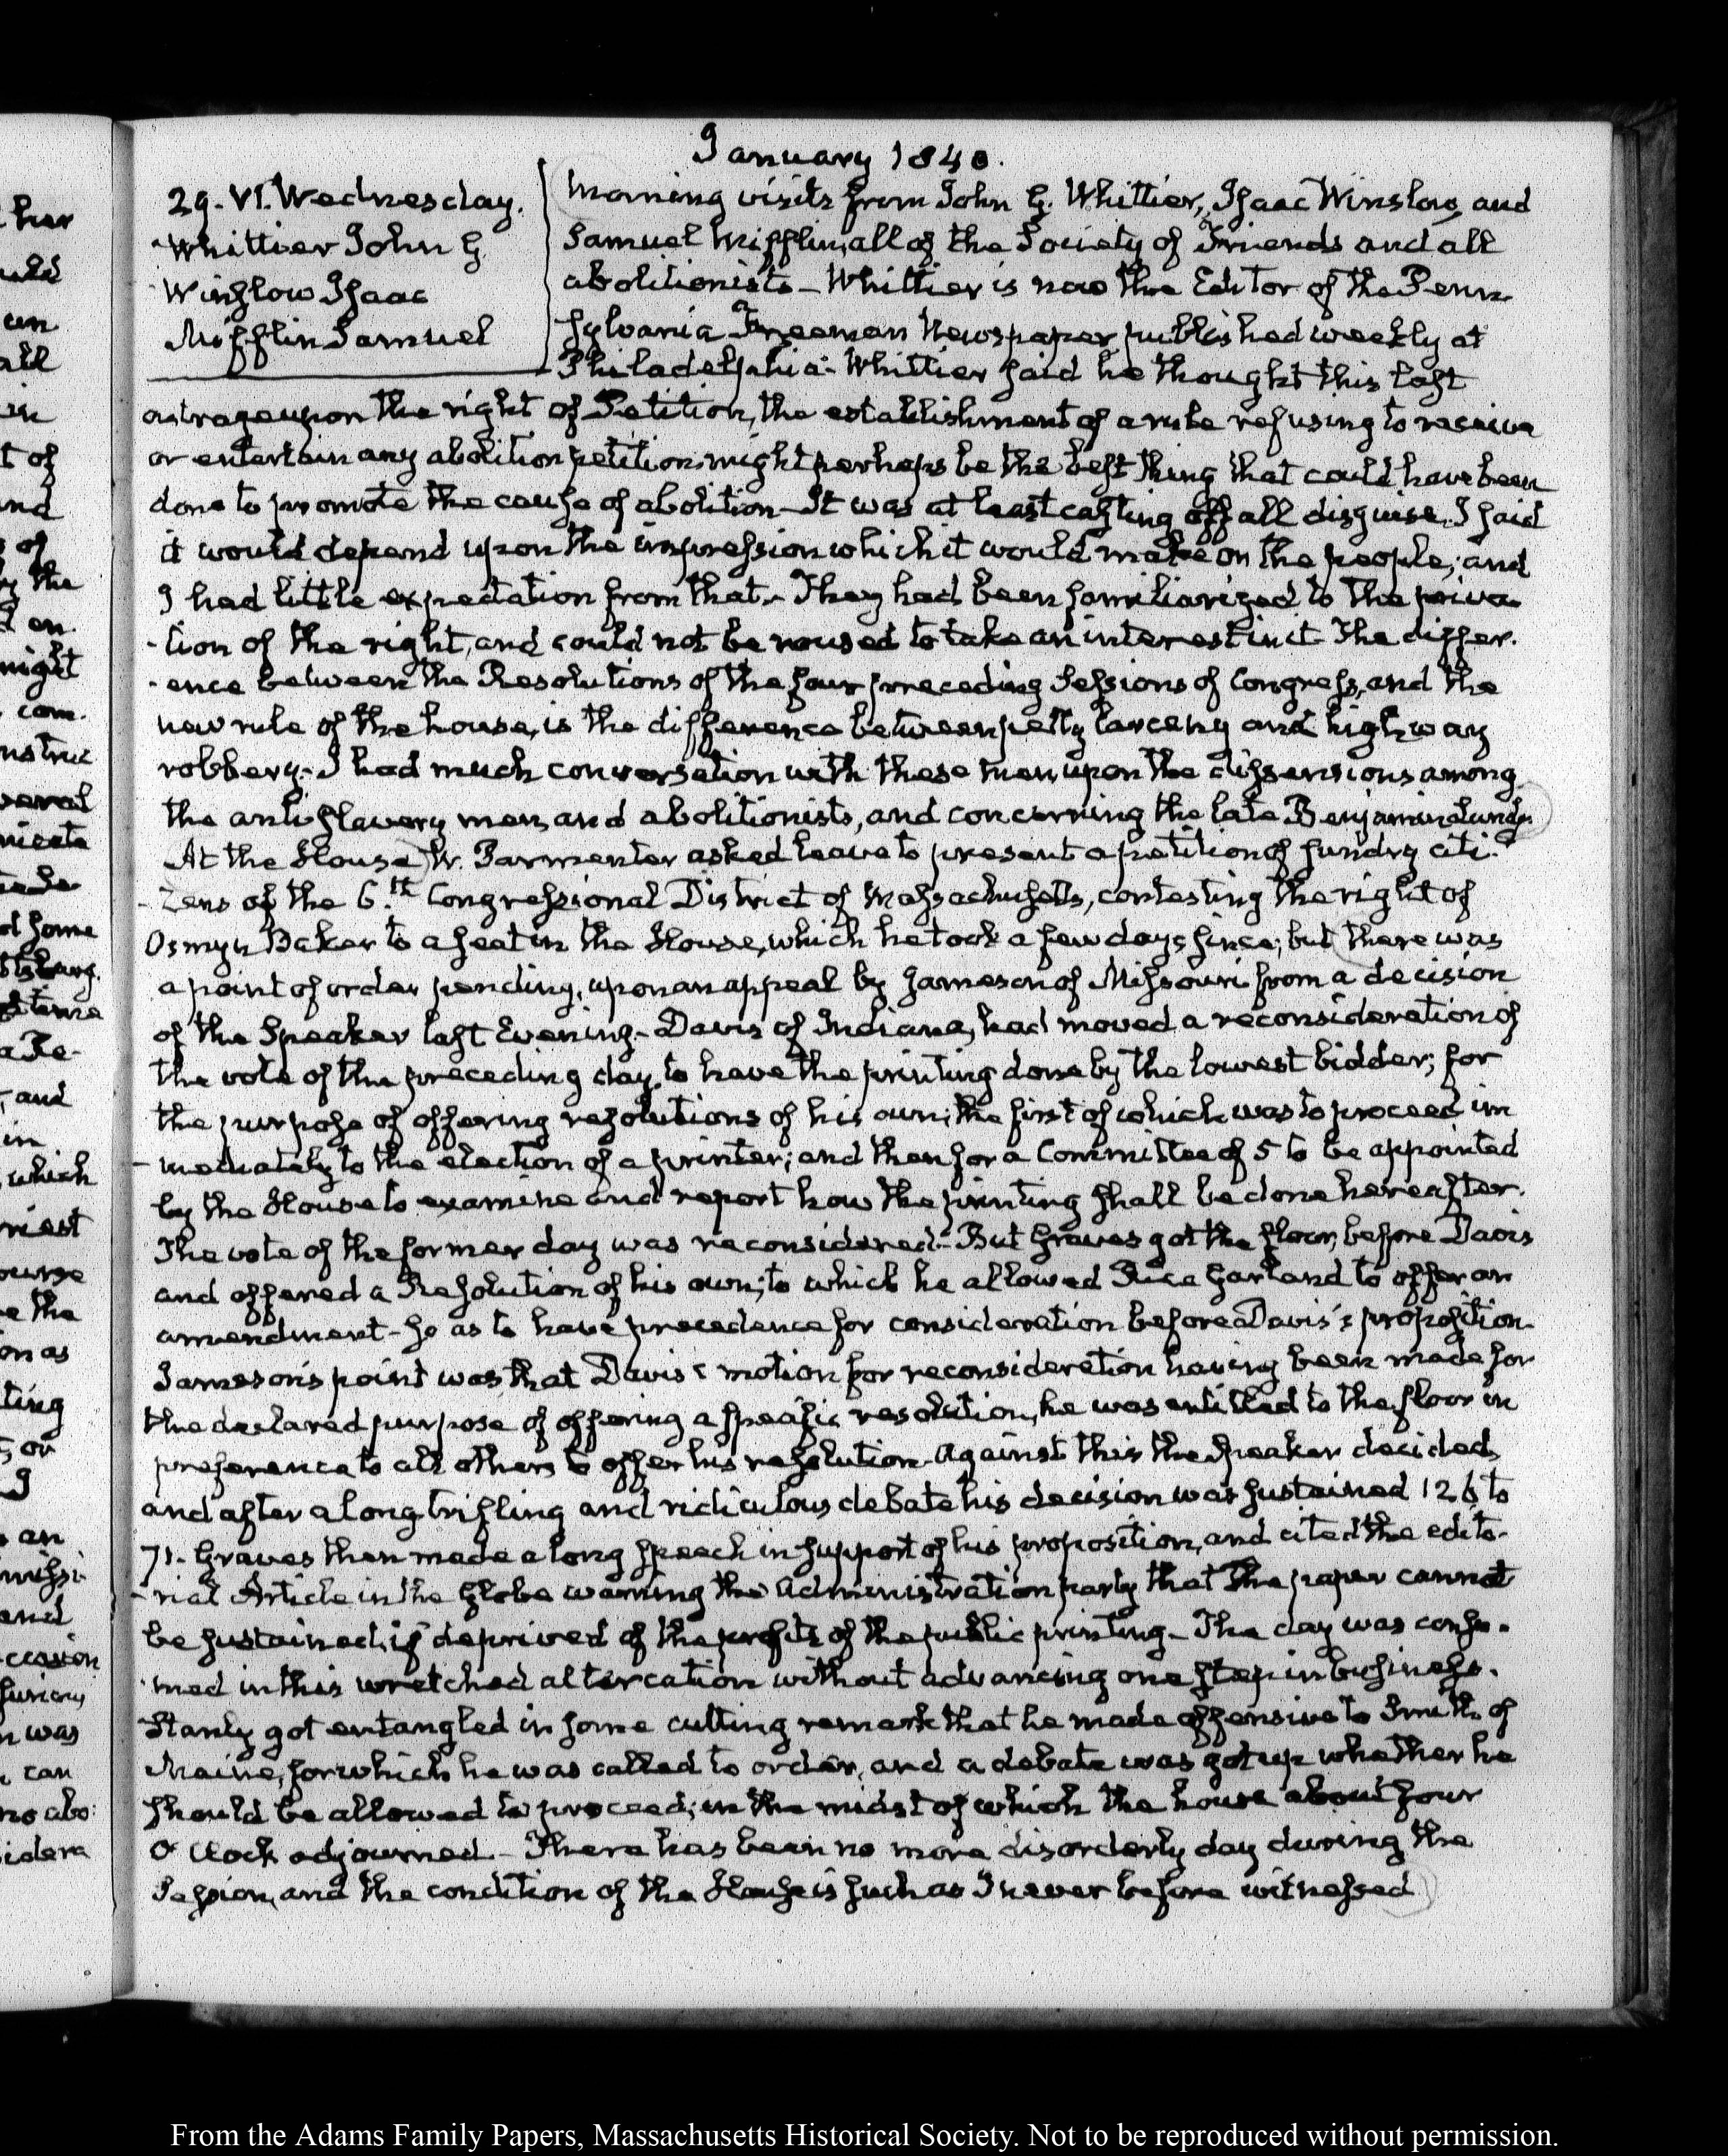 January 1840.
29. VI. Wednesday.
Whittier John G.
Winslow Isaac
Mifflin Samuel
Morning visits from John G. Whittier, Isaac Winslow, and
Samuel Mifflin, all of the Society of Friends and all
abolitionists – Whittier is now the Editor of the Penn-
sylvania Freeman Newspaper published weekly at
Philadelphia – Whittier said he thought this last
outrage upon the right of Petition, the establishment of a rule refusing to receive
or entertain any abolition petition might perhaps be the best thing that could have been
done to promote the cause of abolition – It was at least casting off all disguise. I said
it would depend upon the impression which it would make on the people; and
I had little expectation from that. – They had been familiarized to the priva-
-tion of the right, and could not be roused to take an interest in it. The differ-
-ence between the Resolutions of the four preceding Sessions of Congress, and the
new rule of the house, is the difference between petty larceny and highway
robbery. – I had much conversation with these men, upon the dissensions among
the anti-slavery men, and abolitionists, and concerning the late Benjamin Lundy.
At the House W. Parmenter asked leave to present a petition of sundry citi-
-zens of the 6.th Congressional District of Massachusetts, contesting the right of
Osmyn Baker to a seat in the House, which he took a few days since; but there was
a point of order pending, upon an appeal by Jameson of Missouri from a decision
of the Speaker last Evening. – Davis of Indiana, had moved a reconsideration of
the vote of the preceding day, to have the printing done by the lowest bidder; for
the purpose of offering resolutions of his own; the first of which was to proceed im
-mediately to the election of a printer; and then for a Committee of 5 to be appointed
by the House to examine and report how the printing shall be done hereafter.
The vote of the former day was reconsidered. – But Graves got the floor, before Davis
and offered a Resolution of his own; to which he allowed Rice Garland to offer an
amendment – so as to have precedence for consideration before Davis's proposition.
Jameson's point was that Davis's motion for reconsideration having been made for
the declared purpose of offering a specific resolution, he was entitled to the floor in
preference to all others to offer his resolution. Against this the Speaker decided,
and after a long trifling and ridiculous debate his decision was sustained 126 to
71. Graves then made a long speech in support of his proposition, and cited the edito-
-rial Article in the Globe warning the Administration party that the paper cannot
be sustained, if deprived of the profits of the public printing – The day was consu-
-med in this wretched altercation without advancing one step in business.
Stanly got entangled in some cutting remark that he made offensive to Smith of
Maine, for which he was called to order, and a debate was got up whether he
should be allowed to proceed; in the midst of which the house about four
O'Clock adjourned – There has been no more disorderly day during the
Session, and the condition of the House is such as I never before witnessed
From the Adams Family Papers, Massachusetts Historical Society. Not to be reproduced without permission.